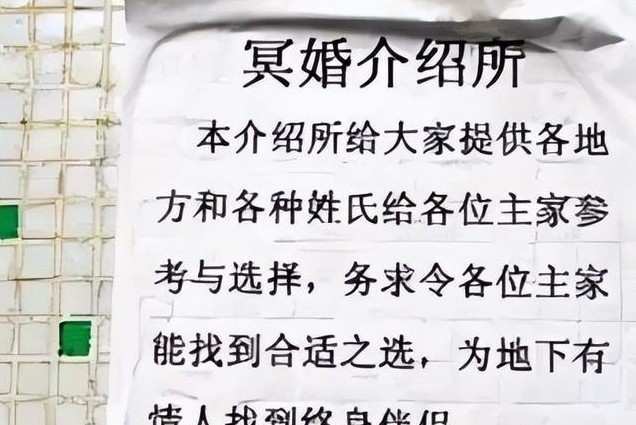 冥婚介绍所
本介绍所给大家提供各地
方和各种姓氏给各位主家参
考与选择，务求令各位主家
能找到合适之选，为地下有
情人找到终身伴侣